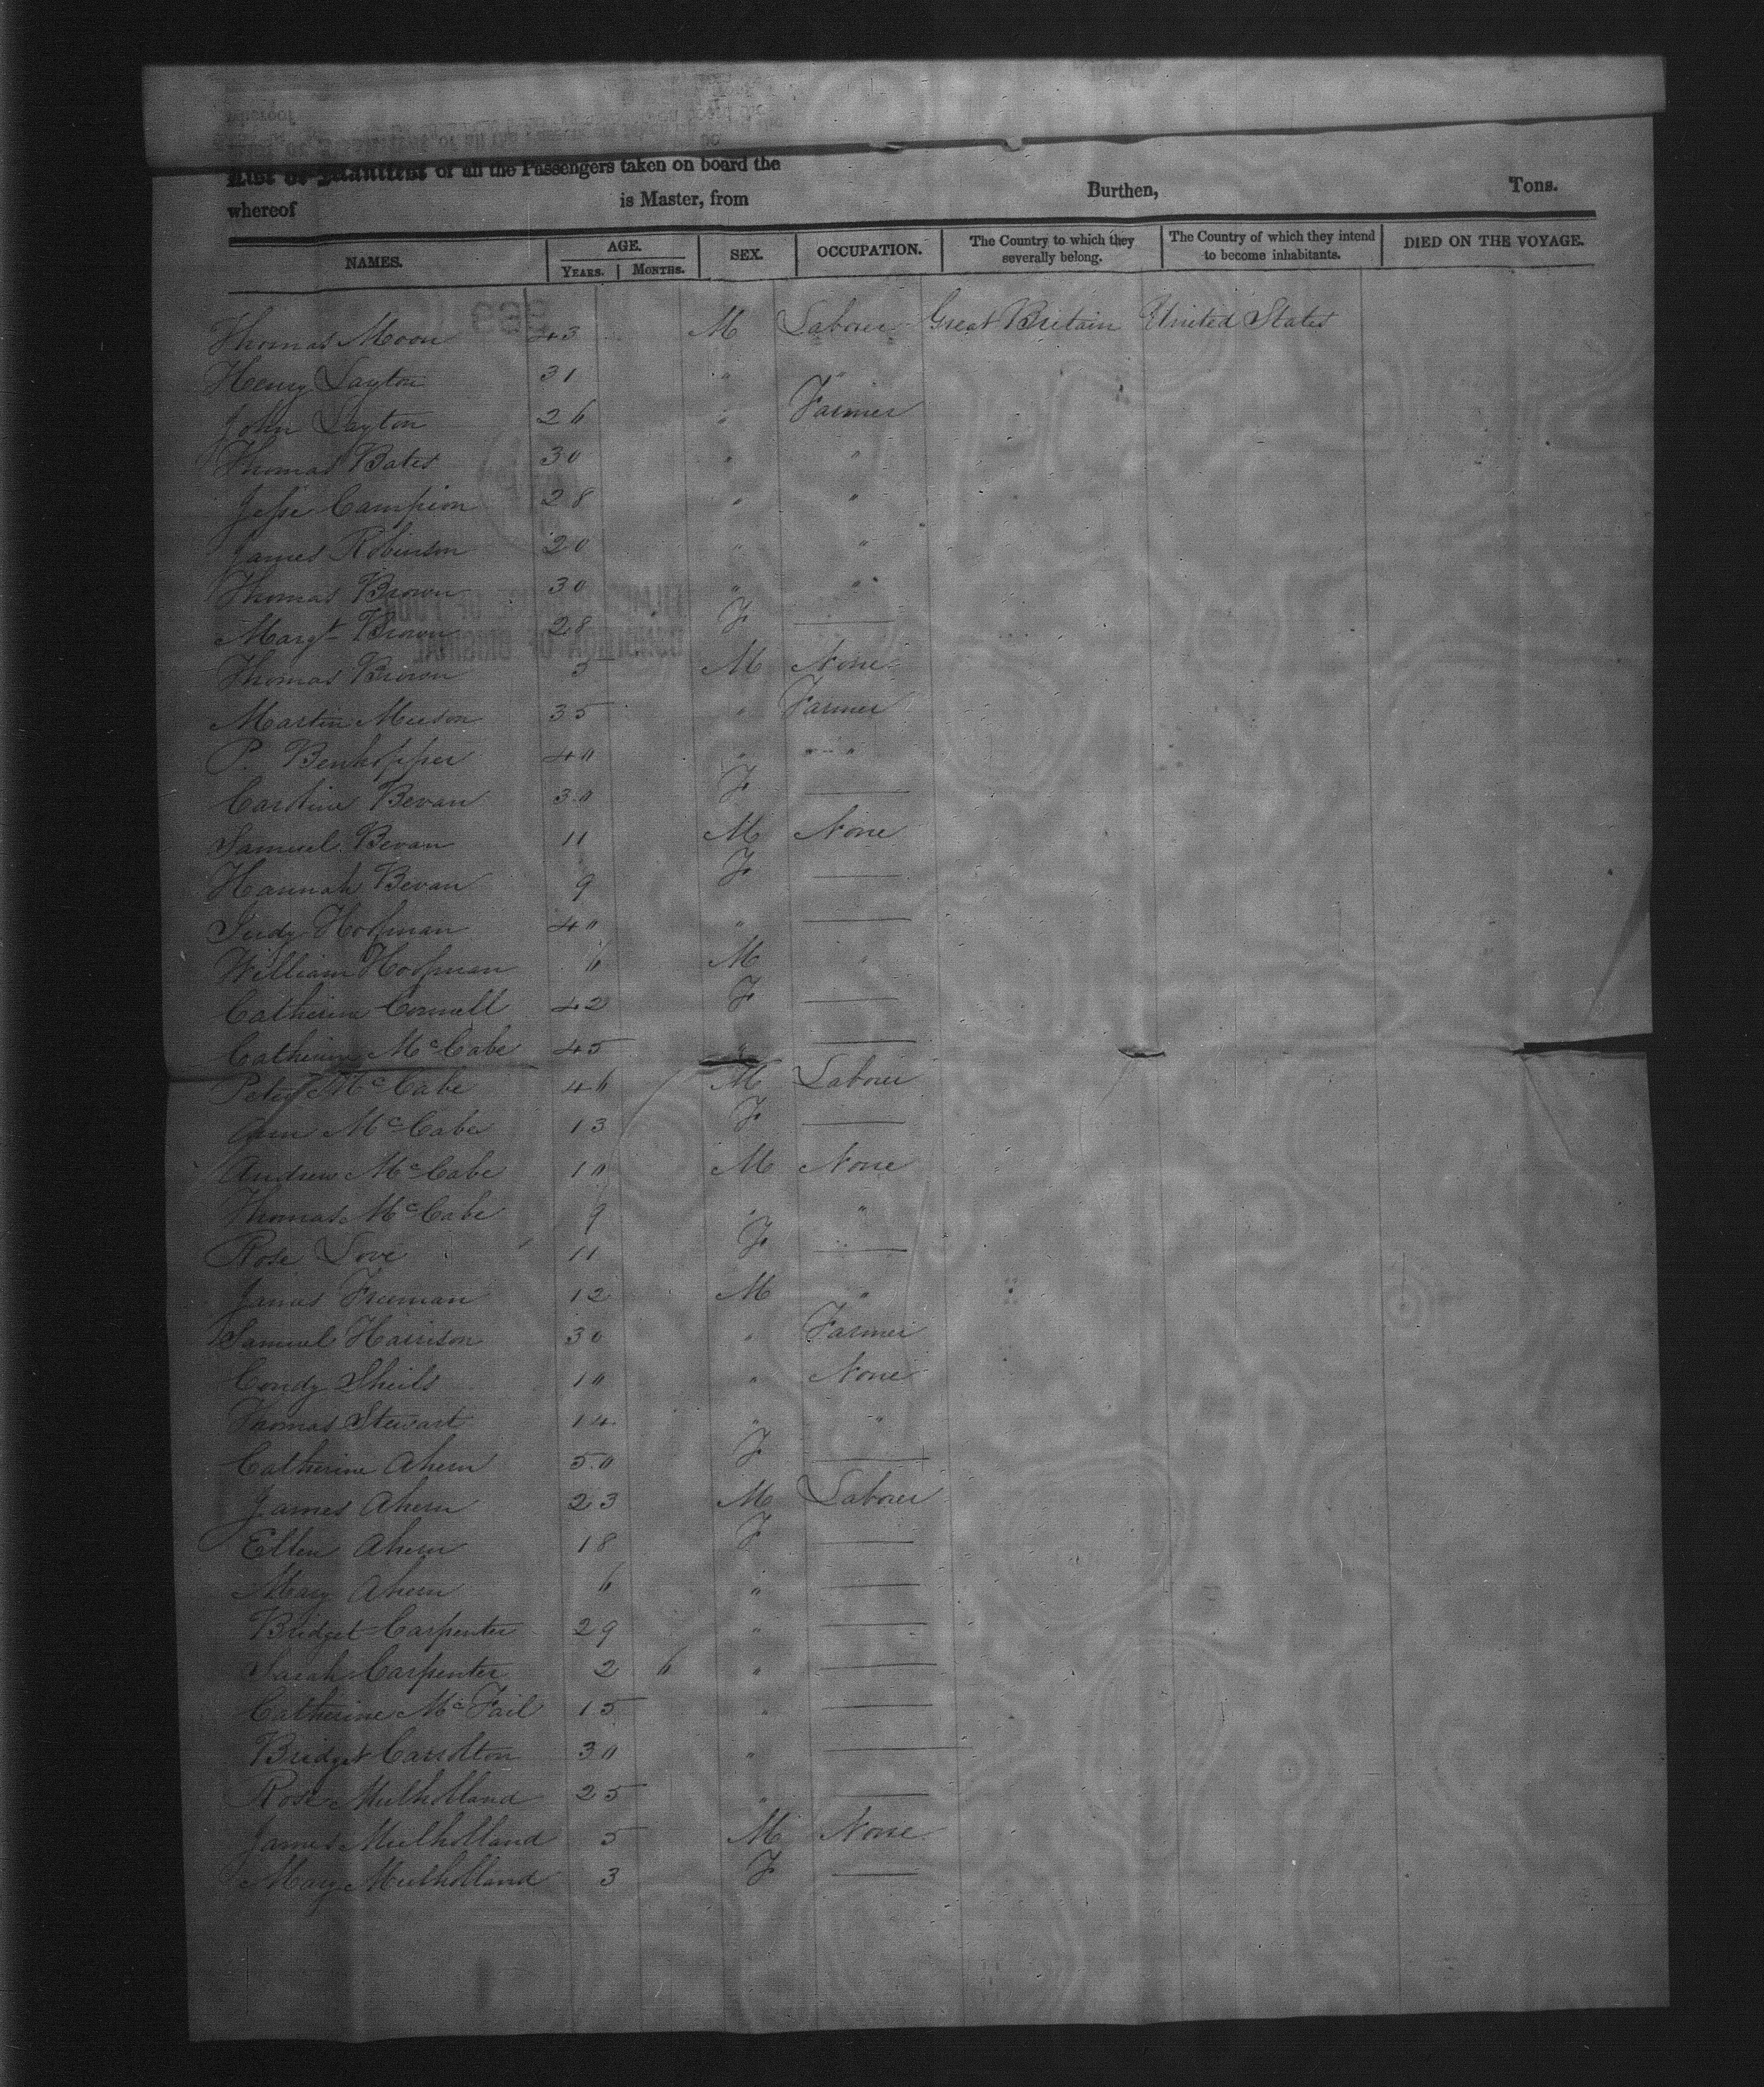 List or Manifest of all the Passengers taken on board the
whereof is Master, from Burthen, Tons.
NAMES. AGE. YEARS. MONTHS. SEX. OCCUPATION. The Country to which they severally belong. The Country of which they intend to become inhabitants. DIED ON THE VOYAGE.
Thomas Moon 43 M Labour Great Britain United States
Henry Layton 31 " "
John Layton 26 " Farmer
Thomas Bates 30 " "
Jesse Campion 28 " "
James Robinson 20 " "
Thomas Brown 30 " "
Margt Brown 28 F —
Thomas Brown 5 M None
Martin Meeson 35 " Farmer
P. Benhopper 40 " "
Caroline Bevan 30 F —
Samuel Bevan 11 M None
Hannah Bevan 9 F —
Judy Hoofman 40 " —
William Hoofman 6 M "
Catherine Connell 42 F —
Catherine McCabe 45 " —
Peter McCabe 46 M Labour
Ann McCabe 13 F —
Andrew McCabe 10 M None
Thomas McCabe 9 " "
Rose Love 11 F —
James Freeman 12 M "
Samuel Harrison 30 " Farmer
Condy Sheils 10 " None
Thomas Stewart 14 " "
Catherine Ahern 50 F —
James Ahern 23 M Labour
Ellen Ahern 18 F —
Mary Ahern 6 " —
Bridget Carpenter 29 " —
Sarah Carpenter 2 6 " —
Catherine McFail 15 " —
Bridget Carrolton 30 " —
Rose Mulholland 25 " —
James Mulholland 5 M None
Mary Mulholland 3 F —